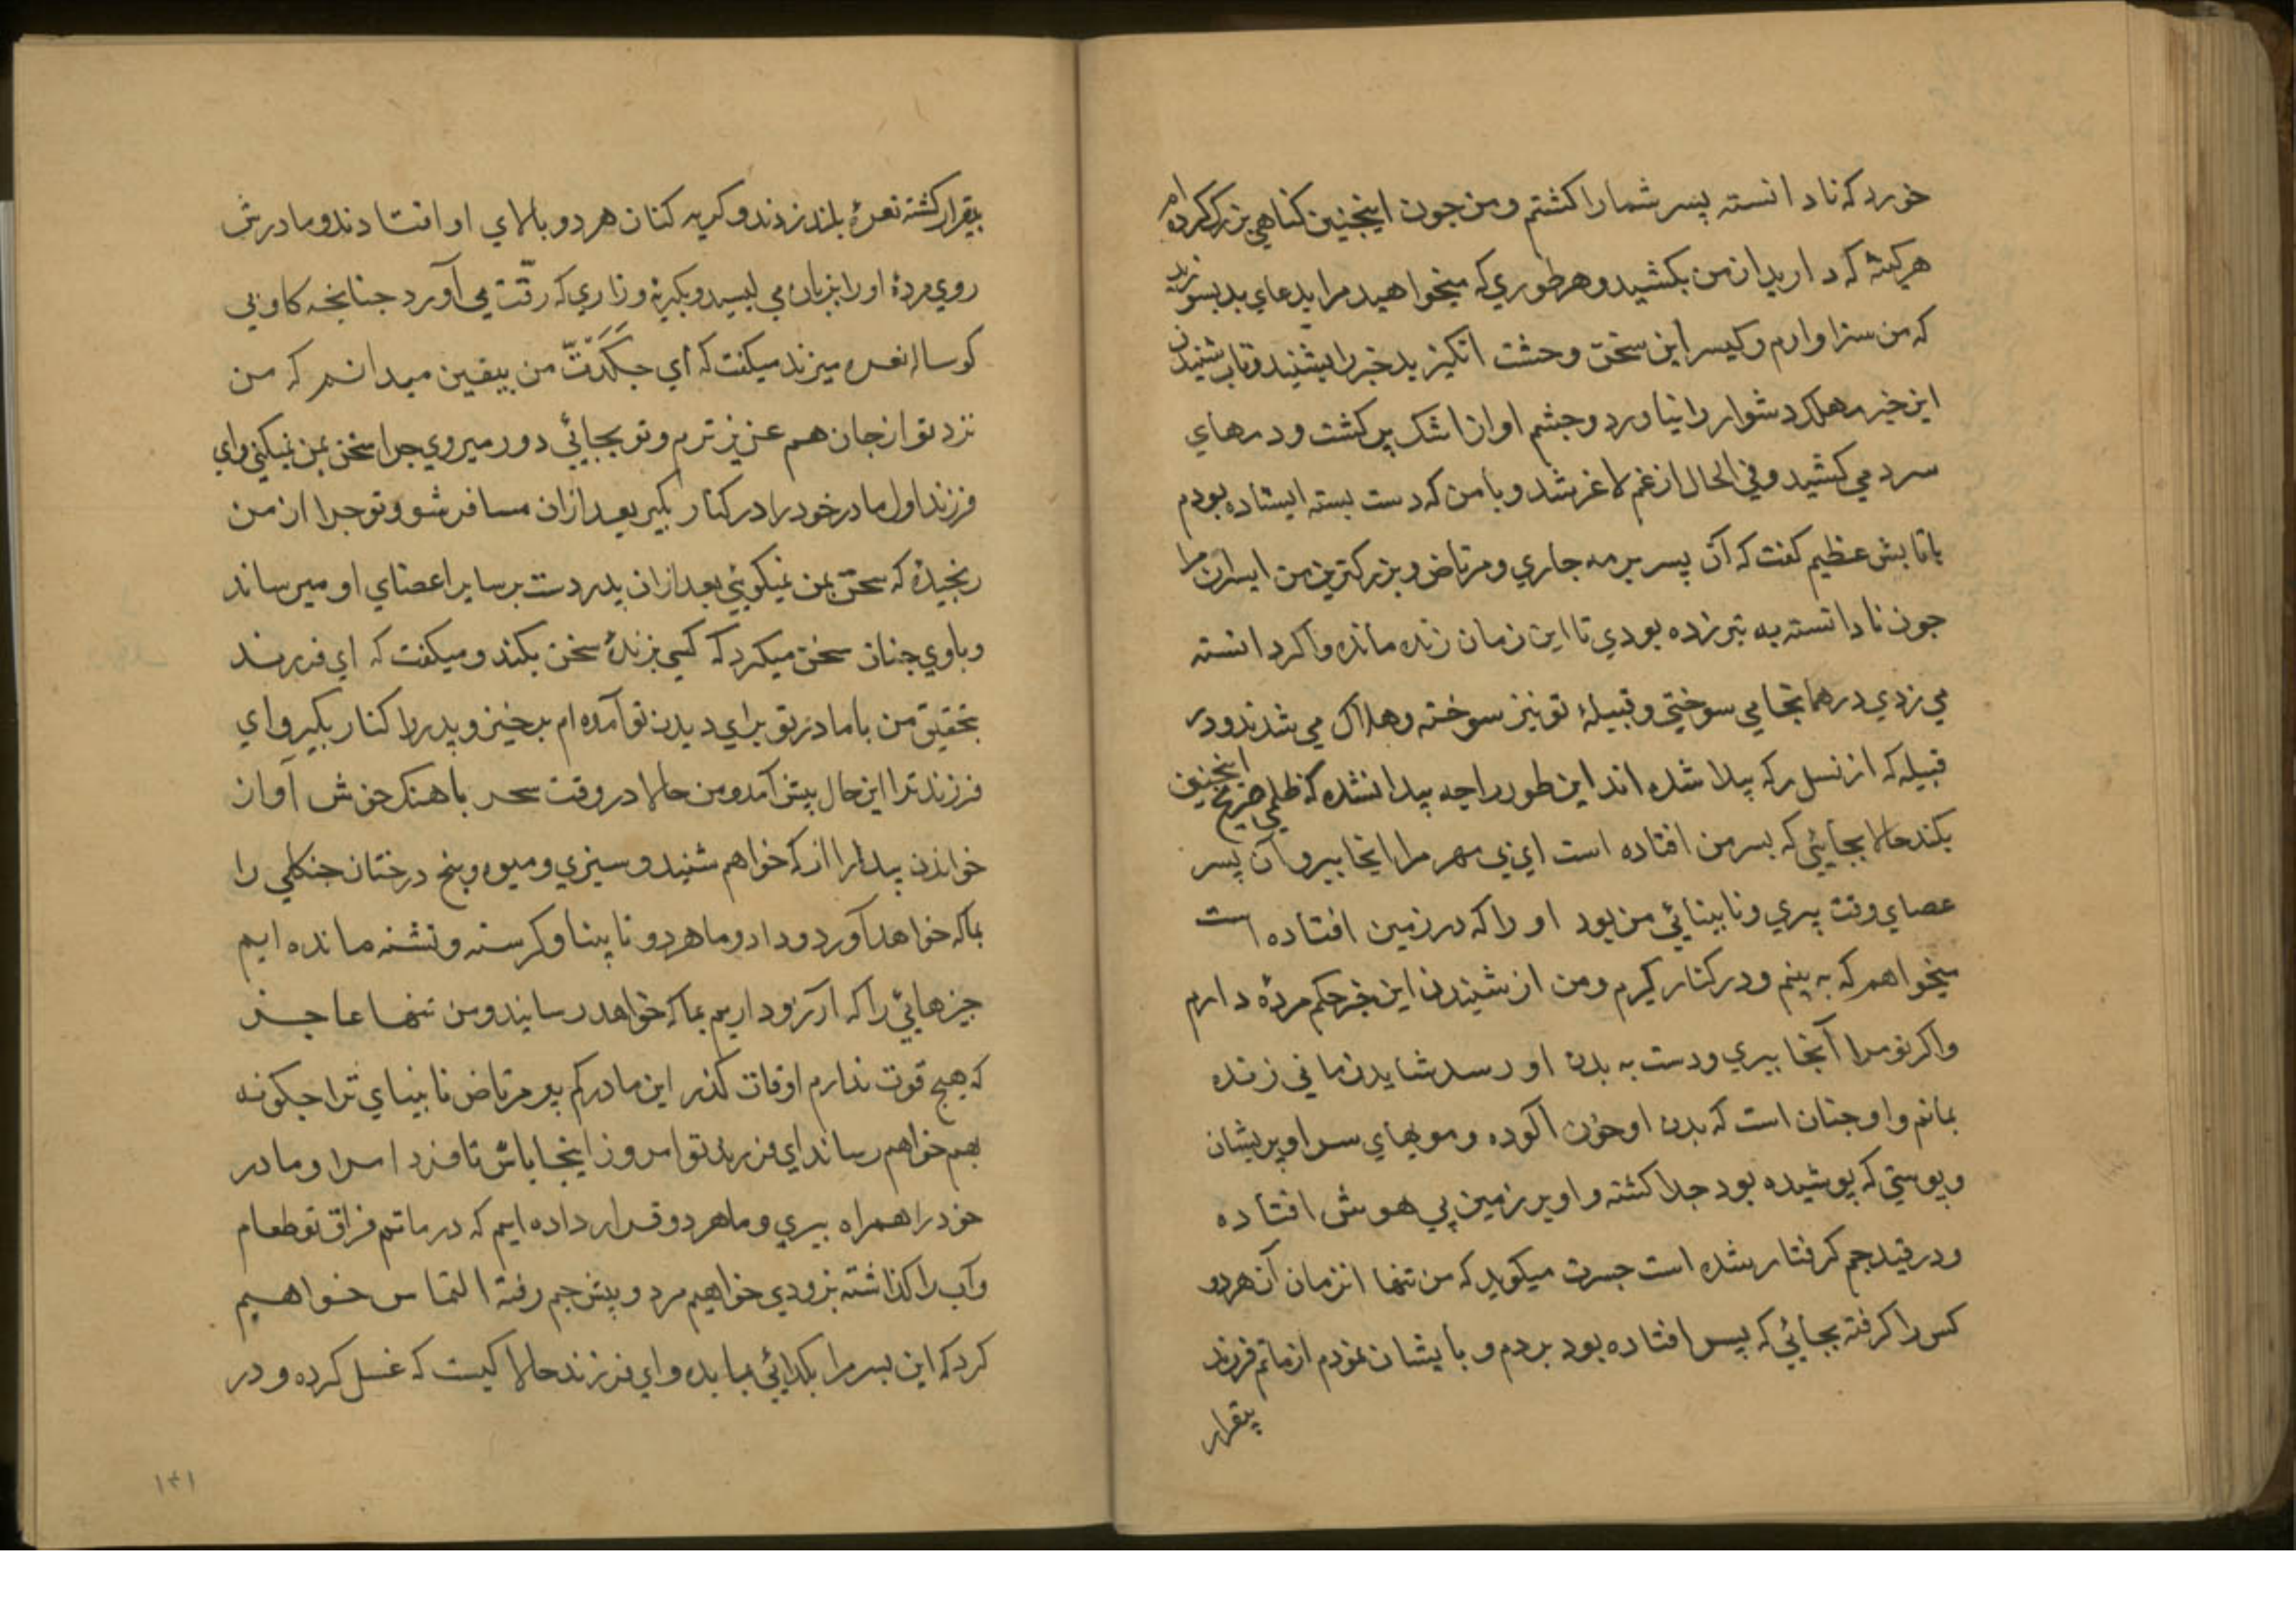 خورد که نادانسته پسر شما را کشتم و من چون اینچنین کناهی بزرک کرده ام
هر کینه که دارید از من بکشید و هر طوری که میخواهید مرا بدعای بد بسوزید
که من سزاوارم و کیسر این سخن وحشت انکیز بد خبر را بشنید و تاب شنیدن
این خبر مهلک دشوار را نیاورد و چشم او از اشک پر کشت و دمهای
سرد می کشید و فی الحال از غم لاغر شد و با من که دست بسته ایستاده بودم
با تابش عظیم کفت که آن پسر برمه چاری و مرتاض و بزرکترین من ایسران مرا
جون نادانسته به تیر زده بودی تا این زمان زنده مانده و اکر دانسته
می زدی در همانجا می سوختی و قبیلۀ تو نیز سوخته و هلاک می شدند و در
قبیله که از نسل رکه پیدا شده اند این طور راجه پیدا نشده که ظلمی صریح اینچنین
بکند حالا بجایئی که بسر من افتاده است ای بی مهر مرا اینجا ببر و آن پسر
عصای وقت پیری و نابینائی من بود او را که در زمین افتاده است
میخواهم که به بینم و در کنار کیرم و من از شنیدن این خبر حکم مردۀ دارم
و اکر تو مرا آنجا ببری و دست به بدن او رسد شاید زمانی زنده
بمانم و او چنان است که بدن او خون آلوده و مویهای سر او پریشان
و پوستی که پوشیده بود جدا کشته و او بر زمین بی هوش افتاده
و در قید جم کرفتار شده است جسرت میکوید که من تنها انزمان آن هردو
کس را کرفته بجائی که پسر افتاده بود بردم و بایشان نمودم از ماتم فرزند
بیقرار
بیقرار کشته نعرۀ بلند زدند و کریه کنان هر دو بالای او افتادند و مادرش
روی مردۀ او را بزبان می لیسید و بکریه و زاری که رقّت می آورد چنانچه کاو بی
کوساله نعره میزند میکفت که ای جکدّتّ من بیقین میدانم که من
نزد تو از جان هم عزیز ترم و تو بجایئ دور میروی چرا سخن بمن نمیکنی و ای
فرزند اول مادر خود را در کنار بکیر بعد ازان مسافر شو و تو چرا از من
رنجیدۀ که سخن بمن نمیکوئی بعد ازان پدر دست بر سایر اعضای او میرساند
و با وی چنان سخن میکرد که کسی بزندۀ سخن بکند و میکفت که ای فرزند
بتحقیق من با مادر تو برای دیدن تو آمده ام بر خیز و پدر را کنار بکیر و ای
فرزند ترا این حال پیش آمد و من حالا در وقت سحر با هنک خوش آواز
خواندن بیدارا از که خواهم شنید و سبزی و میوه و بیخ درختان جنکلی را
بما که خواهد آورد و داد و ما هر دو نا بینا و کرسنه و تشنه مانده ایم
چیزهایئ را که آرزو داریم بما که خواهد رسانید و من تنها عاجز
که هیچ قوت ندارم اوقات کذر این مادر کم پیر مرتاض نابینای ترا چکونه
بهم خواهم رساند ای فرزند تو امروز اینجا باش تا فردا مرا و مادر
خود را همراه ببری و ما هر دو قرار داده ایم که در ماتم فراق تو طعام
و آب را کذاشته بزودی خواهیم مرد و پیش جم رفته التماس خواهیم
کرد که این بسر مرا بکدائی بما بده و ای فرزند حالا کیست که غسل کرده و در
۱۴۱